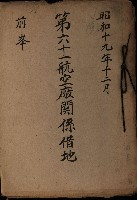 昭和十九年十二月
第六十一航空廠関係借地
前峯